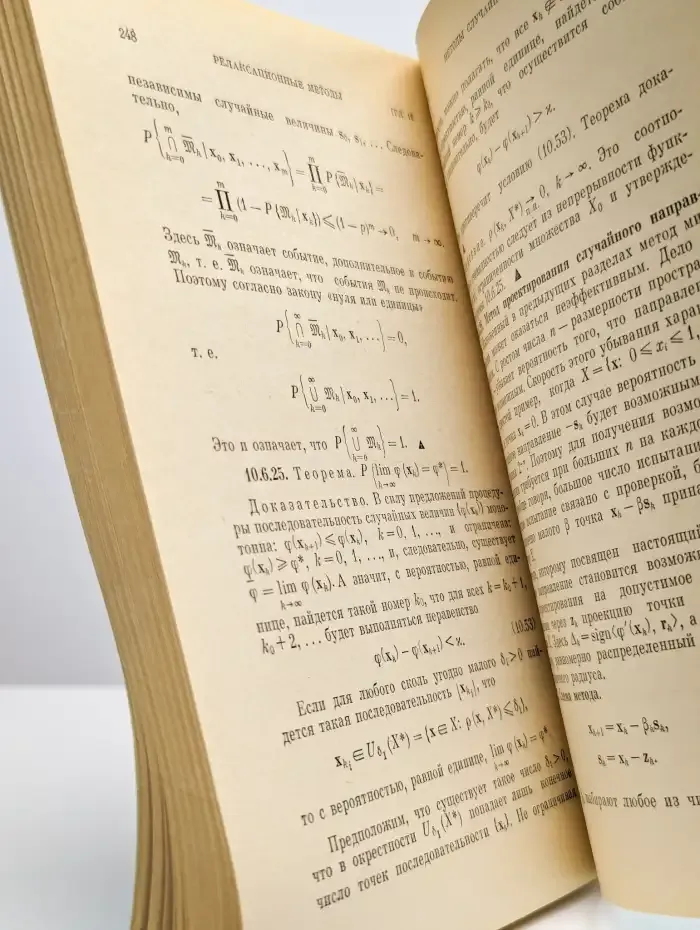 248
РЕЛАКСАЦИОННЫЕ МЕТОДЫ
независимы случайные величины s₀, s₁, ... Следова-
тельно,
P{⋂_{k=0}^{m} 𝔐̄ₖ | x₀, x₁, ..., xₘ} = ∏_{k=0}^{m} P{𝔐̄ₖ | xₖ} =
= ∏_{k=0}^{m} (1 − P{𝔐ₖ | xₖ}) ⩽ (1 − p)ᵐ → 0, m → ∞.
Здесь 𝔐̄ₖ означает событие, дополнительное к событию
𝔐ₖ, т. е. 𝔐̄ₖ означает, что события 𝔐ₖ не происходит.
Поэтому согласно закону «нуля или единицы»
P{⋂_{k=0}^{∞} 𝔐̄ₖ | x₀, x₁, ...} = 0,
т. е.
P{⋃_{k=0}^{∞} 𝔐ₖ | x₀, x₁, ...} = 1.
Это и означает, что P{⋃_{k=0}^{∞} 𝔐ₖ} = 1. ▲
10.6.25. Теорема. P{lim_{k→∞} φ(xₖ) = φ*} = 1.
Доказательство. В силу предложений процеду-
ры последовательность случайных величин {φ(xₖ)} моно-
тонна: φ(xₖ₊₁) ⩽ φ(xₖ), k = 0, 1, ..., и ограничена:
φ(xₖ) ⩾ φ*, k = 0, 1, ..., и, следовательно, существует
φ̄ = lim_{k→∞} φ(xₖ). А значит, с вероятностью, равной еди-
нице, найдется такой номер k₀, что для всех k = k₀+1,
k₀+2, ... будет выполняться неравенство
φ(xₖ) − φ(xₖ₊₁) < ϰ. (10.53)
Если для любого сколь угодно малого δ₁ > 0 най-
дется такая последовательность {x_{kᵢ}}, что
x_{kᵢ} ∈ U_{δ₁}(X*) = {x ∈ X: ρ(x, X*) ⩽ δ₁},
то с вероятностью, равной единице, lim_{k→∞} φ(xₖ) = φ*.
Предположим, что существует такое число δ₁ > 0,
что в окрестности U_{δ₁}(X*) попадает лишь конечное
число точек последовательности {xₖ}. Не ограничивая
МЕТОДЫ СЛУЧАЙ
полагать, что все xₖ ∉
равной единице, найдется
номер k ⩾ k₀, что осуществится
будет
φ(xₖ) − φ(xₖ₊₁) > ϰ.
условию (10.53). Теорема дока-
ρ(xₖ, X*) → 0, k → ∞. Это соотно-
следует из непрерывности функ-
ограниченности множества X₀ и утвержде-
10.6.25. ▲
Метод проектирования случайного направ-
в предыдущих разделах метод
может оказаться неэффективным. Дело
С ростом числа n — размерности простра-
вероятность того, что направлен
Скорость этого убывания хара
пример, когда X = {x: 0 ⩽ xᵢ ⩽ 1,
xᵢ = 0. В этом случае вероятность
направление −sₖ будет возможным
Поэтому для получения возмо
требуется при больших n на каждо
говоря, большое число испытани
испытание связано с проверкой,
малого β точка xₖ − βsₖ прина
которому посвящен настоящий
направление становится возмож
на допустимое
через zₖ проекцию точки
Здесь Δₖ = sign(φ′(xₖ), rₖ), а
равномерно распределенный
радиуса.
Схема метода.
xₖ₊₁ = xₖ − βₖsₖ,
sₖ = xₖ − zₖ.
выбирают любое из чи